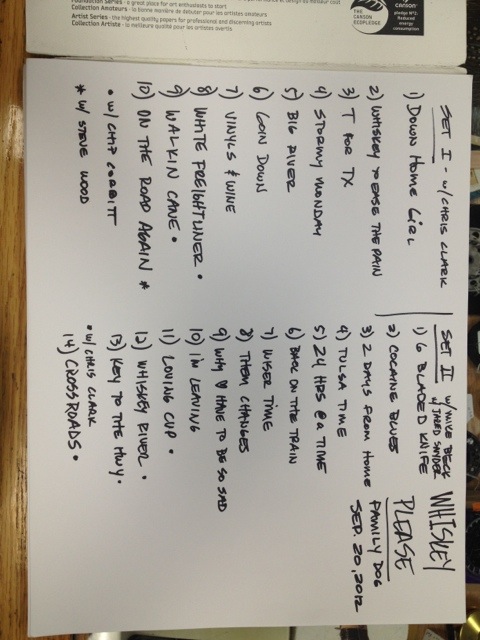 Foundation Series - a great place for art enthusiasts to start
Collection Amateurs - la bonne manière de débuter pour les artistes-amateurs
Artist Series - the highest quality papers for professional and discerning artists
Collection Artiste - la meilleure qualité pour les artistes avertis
THE
CANSON
ECOPLEDGE
CANSON
pledge N°2:
Reduced
energy
consumption
SET I - w/ CHRIS CLARK
1) DOWN HOME GIRL
2) WHISKEY TO EASE THE PAIN
3) T FOR TX
4) STORMY MONDAY
5) BIG RIVER
6) GOIN DOWN
7) VINYLS & WINE
8) WHITE FREIGHTLINER •
9) WALKIN CANE •
10) ON THE ROAD AGAIN *
• w/ CHIP CORBITT
* w/ STEVE WOOD
SET II w/ MIKE BECK
& JARED SNYDER
1) 6 BLADED KNIFE
2) COCAINE BLUES
3) 2 DAYS FROM HOME
4) TULSA TIME
5) 24 HRS @ A TIME
6) BACK ON THE TRAIN
7) WISER TIME
8) THEM CHANGES
9) WHY ♥ HAVE TO BE SO SAD
10) I'M LEAVING
11) LOVING CUP •
12) WHISKEY RIVER •
13) KEY TO THE HWY •
• w/ CHRIS CLARK
14) CROSSROADS •
WHISKEY
PLEASE
FAMILY DOG
SEP. 20, 2012